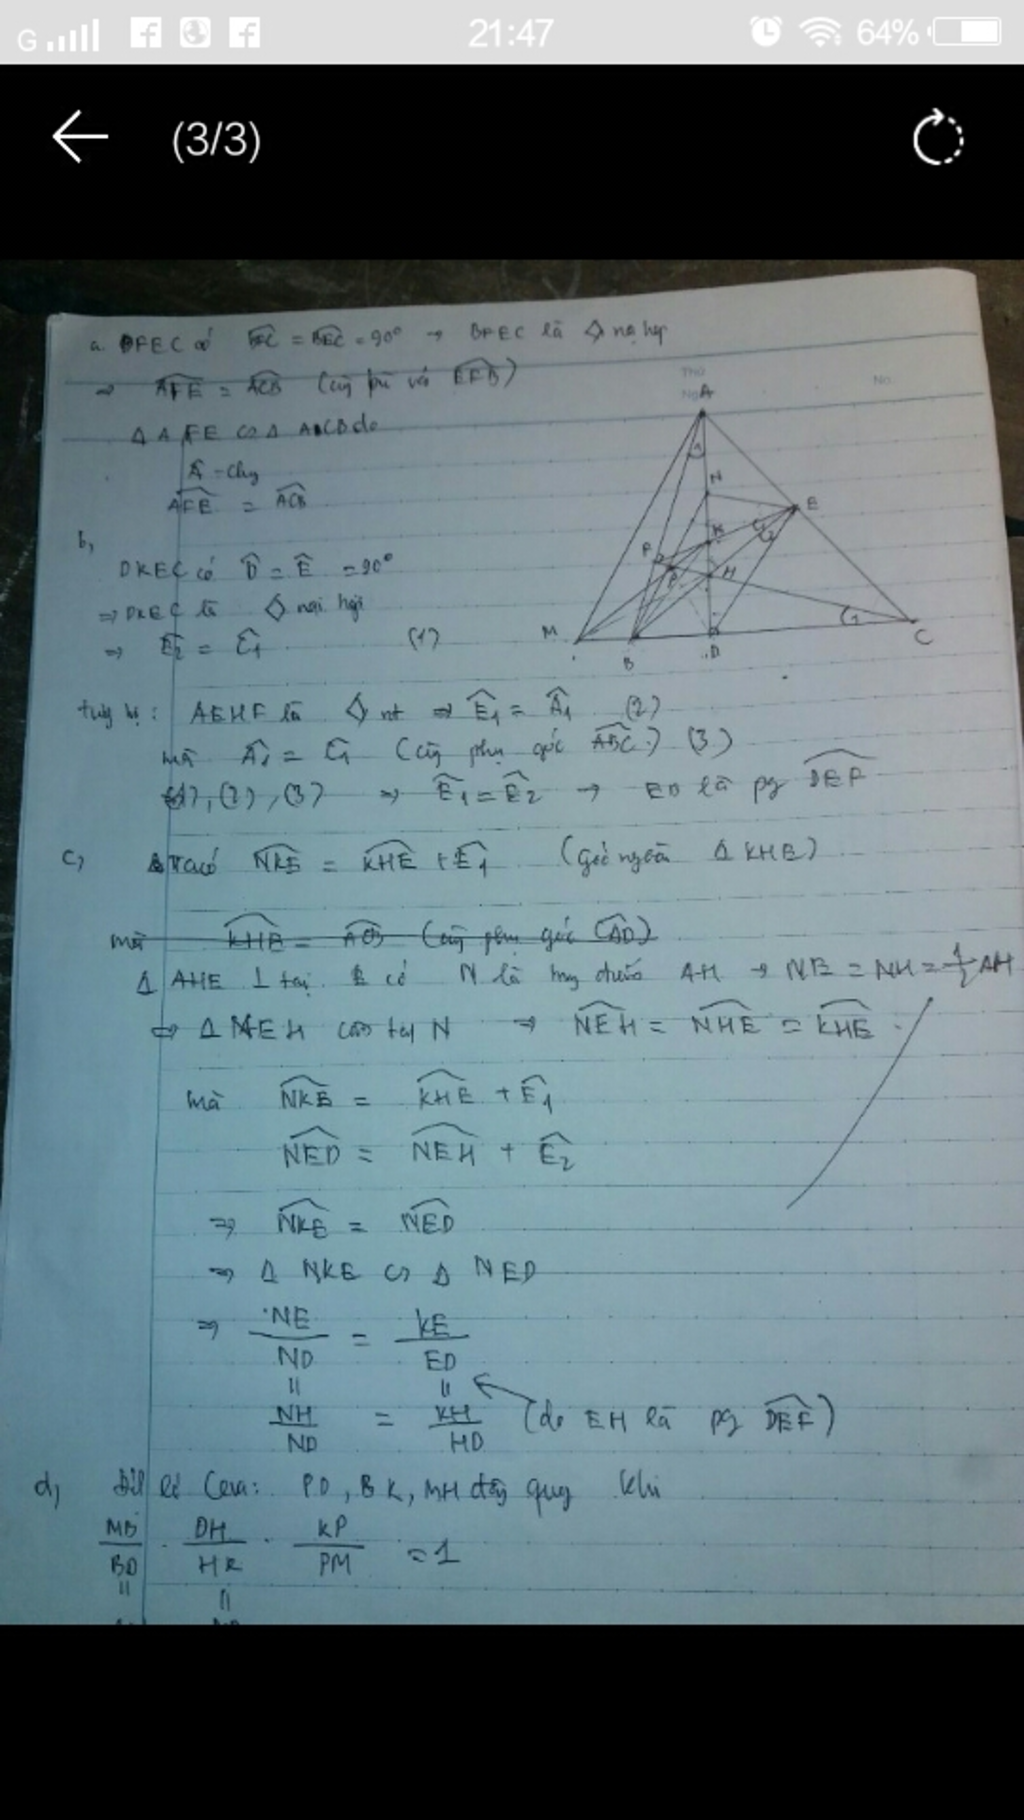 G 21:47 64%
(3/3)
Thứ
Ngày No.
a. BFEC có BFC = BEC = 90° → BFEC là ◇ nội tiếp
⇒ AFE = ACB (cùng bù với EFB)
Δ AFE ∽ Δ ACB do
Â - chg
AFE = ACB
b,
DKEC có D̂ = Ê = 90°
⇒ DKEC là ◇ nội tiếp
⇒ Ê2 = Ĉ1 (1)
A
1
N
E
K
F
P
H
M
B
D
C
1
tương tự: AEHF là ◇ nt ⇒ Ê1 = Â1 (2)
mà Â1 = Ĉ1 (cùng phụ góc ABC) (3)
(1), (2), (3) ⇒ Ê1 = Ê2 → EB là pg DEF
c, Ta có NKE = KHE + Ê1 (góc ngoài Δ KHE)
mà KHE = ACB (cùng phụ góc CAD)
Δ AHE ⊥ tại E có N là trung điểm AH → NE = NH = 1/2 AH
⇒ Δ NEH cân tại N ⇒ NEH = NHE = KHE
mà NKE = KHE + Ê1
NED = NEH + Ê2
⇒ NKE = NED
⇒ Δ NKE ∽ Δ NED
⇒ NE/ND = KE/ED
= =
NH/ND = KH/HD (do EH là pg DEF)
d, Định lí Ceva: PD, BK, MH đồng quy khi
MB/BD . DH/HK . KP/PM = 1
= =